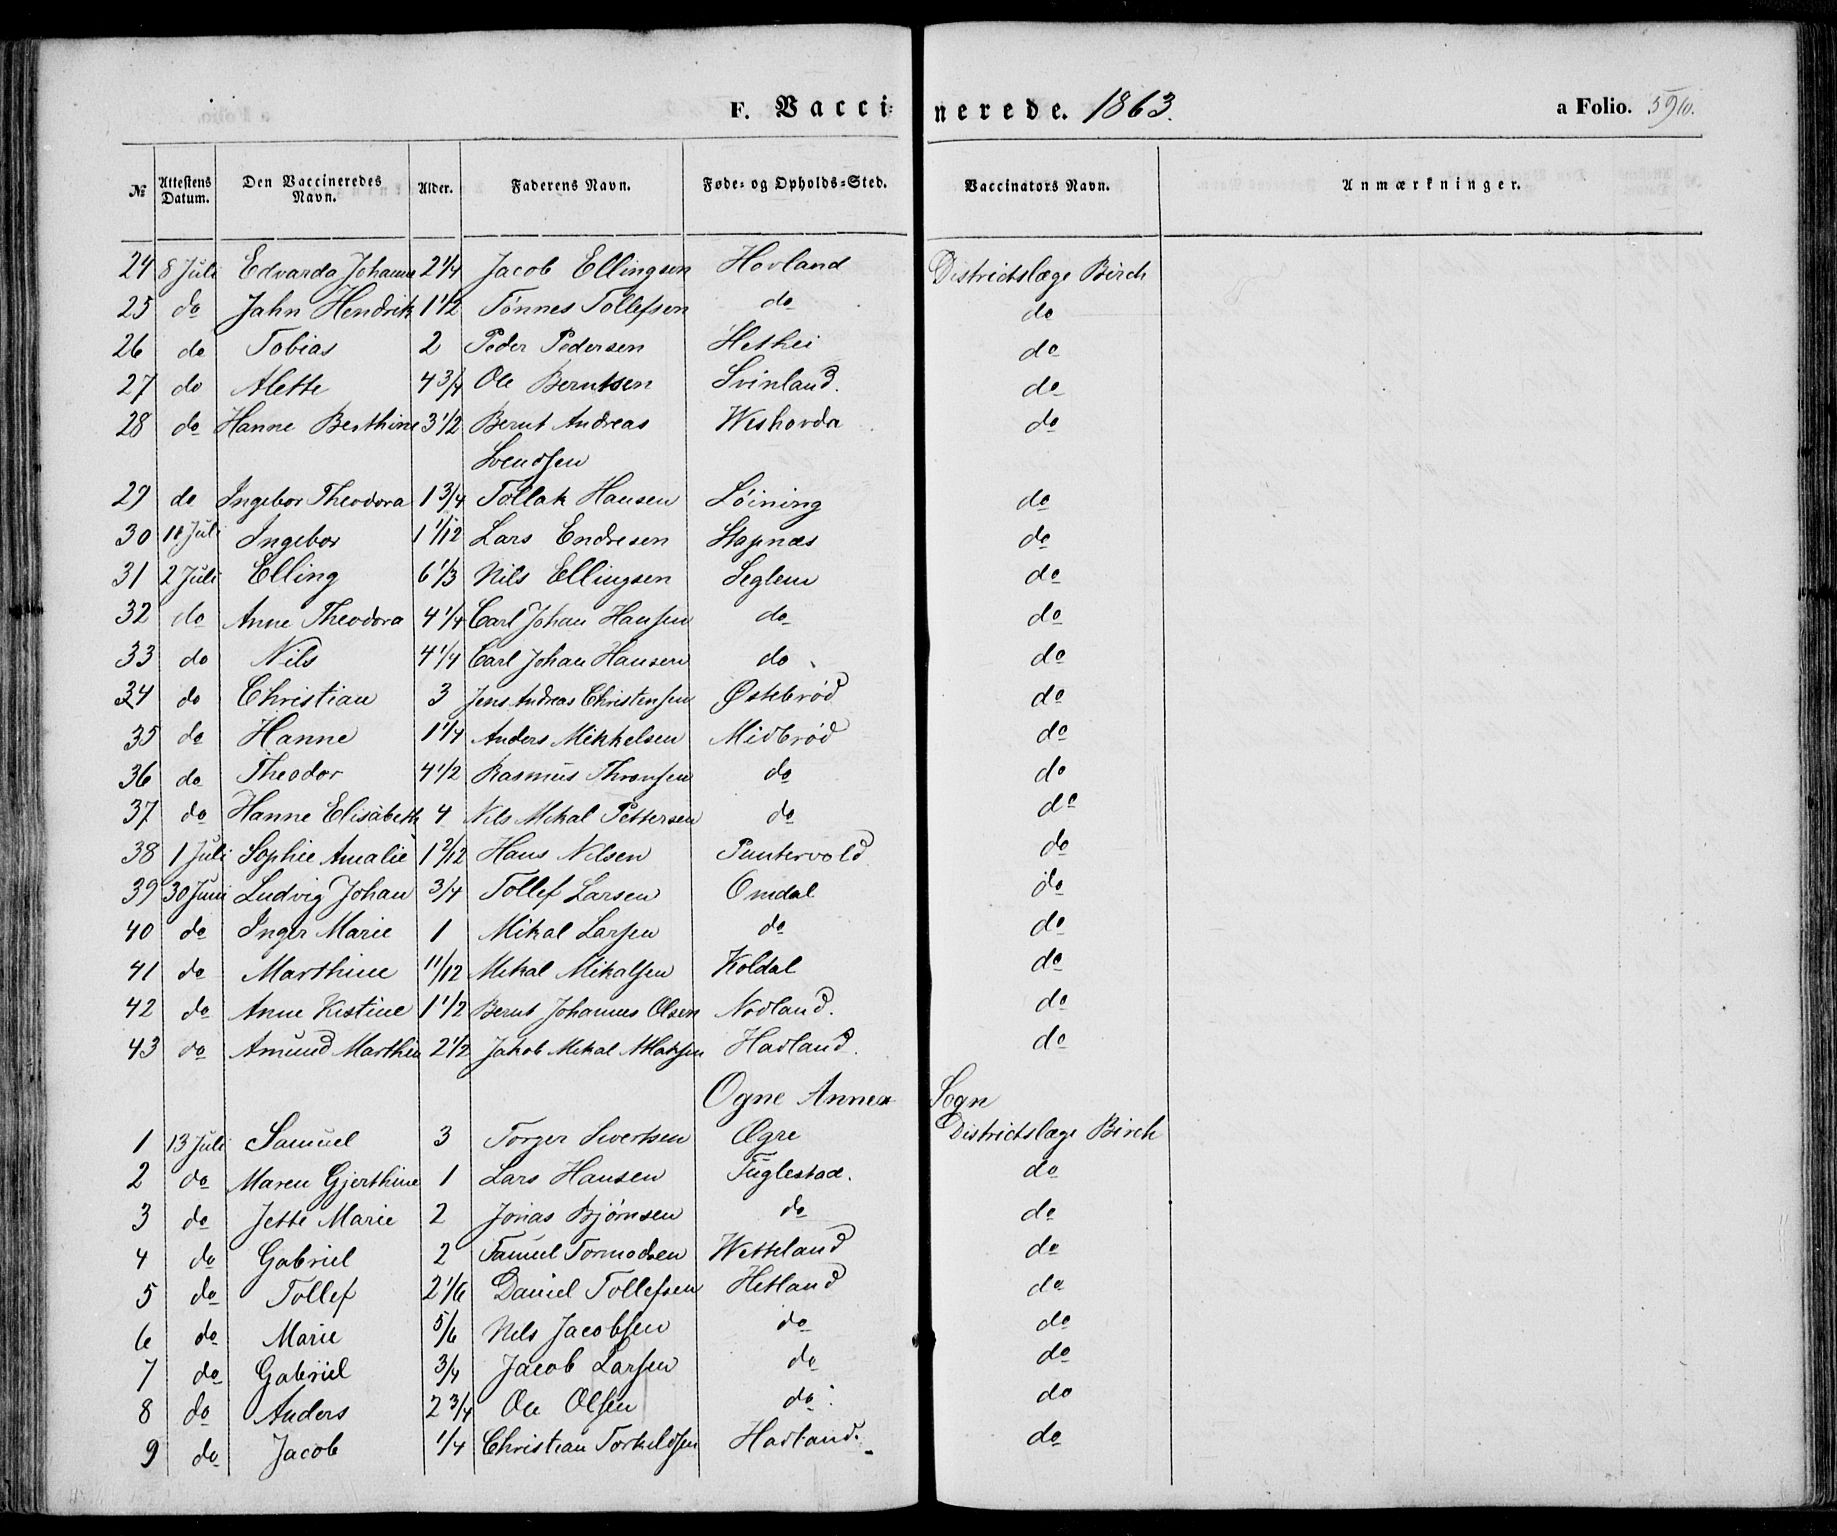 F. Vaccinerede. 1863. a Folio.
№ Attestens Datum. Den Vaccineredes Navn. Alder. Faderens Navn. Føde- og Opholds-Sted. Vaccinators Navn. Anmærkninger.
24 8 Juli Edvarda Johanne 2 1/4 Jacob Ellingsen Hovland Districtslæge Birch
25 do Jahn Hendrik 1 1/2 Tönnes Tollefsen do do
26 do Tobias 2 Peder Pedersen Hethei do
27 do Alette 4 3/4 Ole Berntsen Svinland. do
28 do Hanne Berthine 3 1/2 Bernt Andreas Weshovda do
Svendsen
29 do Ingebor Theodora 1 3/4 Tollak Hansen Löining do
30 11 Juli Ingebor 1 1/12 Lars Endresen Stapnæs do
31 2 Juli Elling 6 1/3 Nils Ellingsen Seglem do
32 do Anne Theodora 4 1/4 Carl Johan Hansen do do
33 do Nils 4 1/4 Carl Johan Hansen do do
34 do Christian 3 Jens Andreas Christensen Østebrød do
35 do Hanne 1 1/4 Anders Mikkelsen Midbrød do
36 do Theodor 4 1/2 Rasmus Thronsen do do
37 do Hanne Elisabeth 4 Nils Mikal Pettersen do do
38 1 Juli Sophie Amalie 1 2/12 Hans Nilsen Puntervold do
39 30 Juni Ludvig Johan 3/4 Tollef Larsen Omdal do
40 do Inger Marie 1 Mikal Larsen do do
41 do Marthine 11/12 Mikal Mikalsen Koldal do
42 do Anne Kistine 1 1/2 Bernt Johannes Olsen Nodland. do
43 do Amund Marthin 2 1/2 Jakob Mikal Hadland. do
Ogne Annex Sogn
1 13 Juli Samuel 3 Torger Sivertsen Ogre Districtslæge Birch
2 do Maren Gjerthine 1 Lars Hansen Fuglestad. do
3 do Jette Marie 2 Jonas Bjørnsen do do
4 do Gabriel 2 Tormodsen Wetteland do
5 do Tollef 2 1/6 Daniel Tollefsen Hetland do
6 do Marie 5/6 Nils Jacobsen do do
7 do Gabriel 3/4 Jacob Larsen do do
8 do Anders 2 3/4 Ole Olsen do do
9 do Jacob 1/4 Christian Torkeldsen Hadland. do